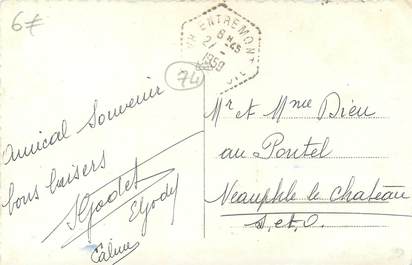 6F
ENTREMONT
6 H 45
2/-
1950
74
Amical Souvenir
bons baisers
SGodet
Calme
Mr et Mme Dieu
au Pontel
Neauphle le Chateau
S. et. O.